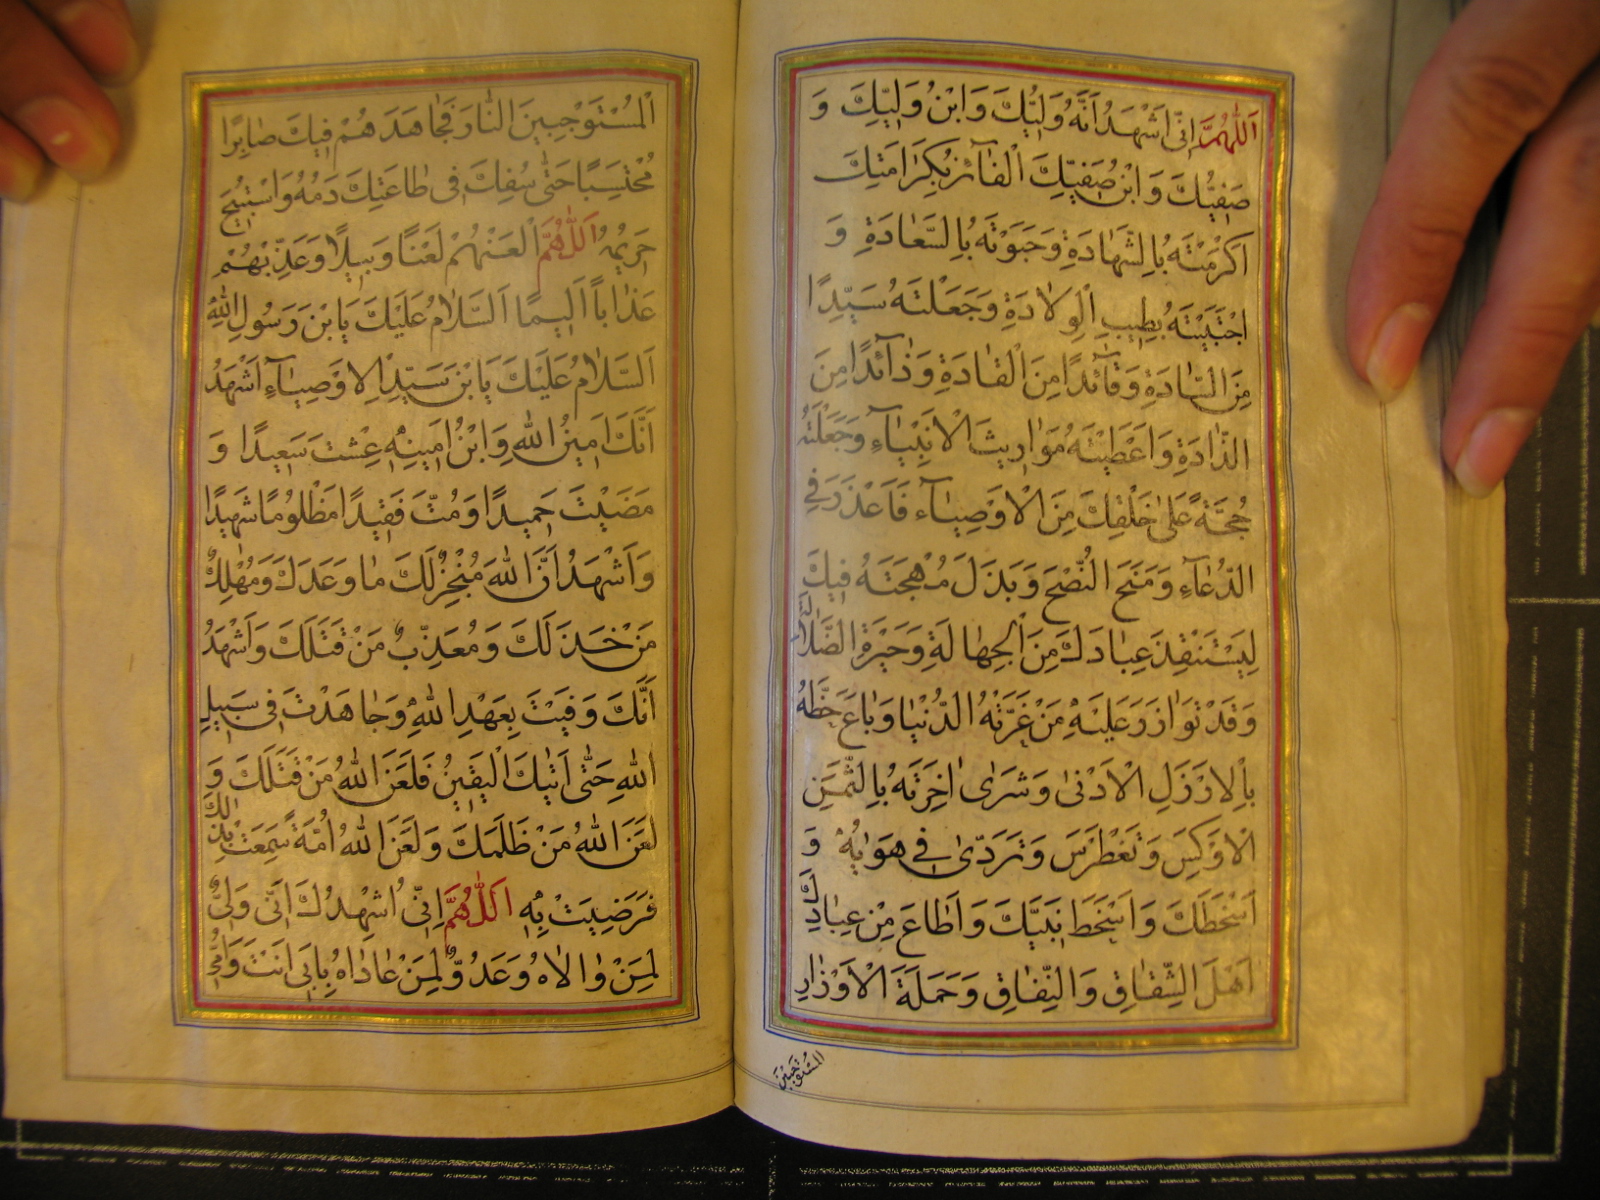 اَللّٰهُمَّ اِنّى اَشْهَدُ اَنَّهُ وَلِيُّكَ وَابْنُ وَلِيِّكَ وَ
صَفِيُّكَ وَابْنُ صَفِيِّكَ الْفٰٓائِزُ بِكَرٰامَتِكَ
اَكْرَمْتَهُ بِالشَّهٰادَةِ وَحَبَوْتَهُ بِالسَّعٰادَةِ وَ
اجْتَبَيْتَهُ بِطِيبِ الْوِلٰادَةِ وَجَعَلْتَهُ سَيِّدًا
مِنَ السّٰادَةِ وَقٰٓائِدًا مِنَ الْقٰادَةِ وَذٰٓائِدًا مِنَ
الذّٰادَةِ وَاَعْطَيْتَهُ مَوٰارِيثَ الْاَنْبِيٰٓاءِ وَجَعَلْتَهُ
حُجَّةً عَلىٰ خَلْقِكَ مِنَ الْاَوْصِيٰٓاءِ فَاَعْذَرَ فِى
الدُّعٰٓاءِ وَمَنَحَ النُّصْحَ وَبَذَلَ مُهْجَتَهُ فِيكَ
لِيَسْتَنْقِذَ عِبٰادَكَ مِنَ الْجَهٰالَةِ وَحَيْرَةِ الضَّلٰالَةِ
وَقَدْ تَوٰازَرَ عَلَيْهِ مَنْ غَرَّتْهُ الدُّنْيٰا وَبٰاعَ حَظَّهُ
بِالْاَرْذَلِ الْاَدْنىٰ وَشَرىٰ اٰخِرَتَهُ بِالثَّمَنِ
الْاَوْكَسِ وَتَغَطْرَسَ وَتَرَدّىٰ فِى هَوٰيهُ وَ
اَسْخَطَكَ وَاَسْخَطَ نَبِيَّكَ وَاَطٰاعَ مِنْ عِبٰادِكَ
اَهْلَ الشِّقٰاقِ وَالنِّفٰاقِ وَحَمَلَةَ الْاَوْزٰارِ
المُسْتَوْجِبِينَ
اَلْمُسْتَوْجِبِينَ النّٰارَ فَجٰاهَدَهُمْ فِيكَ صٰابِرًا
مُحْتَسِبًا حَتّٰى سُفِكَ فِى طٰاعَتِكَ دَمُهُ وَاسْتُبِيحَ
حَرِيمُهُ اَللّٰهُمَّ الْعَنْهُمْ لَعْنًا وَبِيلًا وَعَذِّبْهُمْ
عَذٰاباً اَلِيمًا اَلسَّلٰامُ عَلَيْكَ يَابْنَ رَسُولِ اللهِ
اَلسَّلٰامُ عَلَيْكَ يَابْنَ سَيِّدِ الاَوْصِيٰٓاءِ اَشْهَدُ
اَنَّكَ اَمِينُ اللهِ وَابْنُ اَمِينِهِ عِشْتَ سَعِيدًا وَ
مَضَيْتَ حَمِيدًا وَمُتَّ فَقِيدًا مَظْلُومًا شَهِيدًا
وَاَشْهَدُ اَنَّ اللهَ مُنْجِزٌ لَكَ مٰا وَعَدَكَ وَمُهْلِكٌ
مَنْ خَذَلَكَ وَمُعَذِّبٌ مَنْ قَتَلَكَ وَاَشْهَدُ
اَنَّكَ وَفَيْتَ بِعَهْدِ اللهِ وَجٰاهَدْتَ فِى سَبِيلِ
اللهِ حَتّٰى اَتٰيكَ الْيَقِينُ فَلَعَنَ اللهُ مَنْ قَتَلَكَ وَ
لَعَنَ اللهُ مَنْ ظَلَمَكَ وَلَعَنَ اللهُ اُمَّةً سَمِعَتْ بِذٰلِكَ
فَرَضِيَتْ بِهِ اَللّٰهُمَّ اِنّى اُشْهِدُكَ اَنّى وَلِىٌّ
لِمَنْ وٰالٰاهُ وَعَدُوٌّ لِمَنْ عٰادٰاهُ بِاَبِى اَنْتَ وَاُمِّى